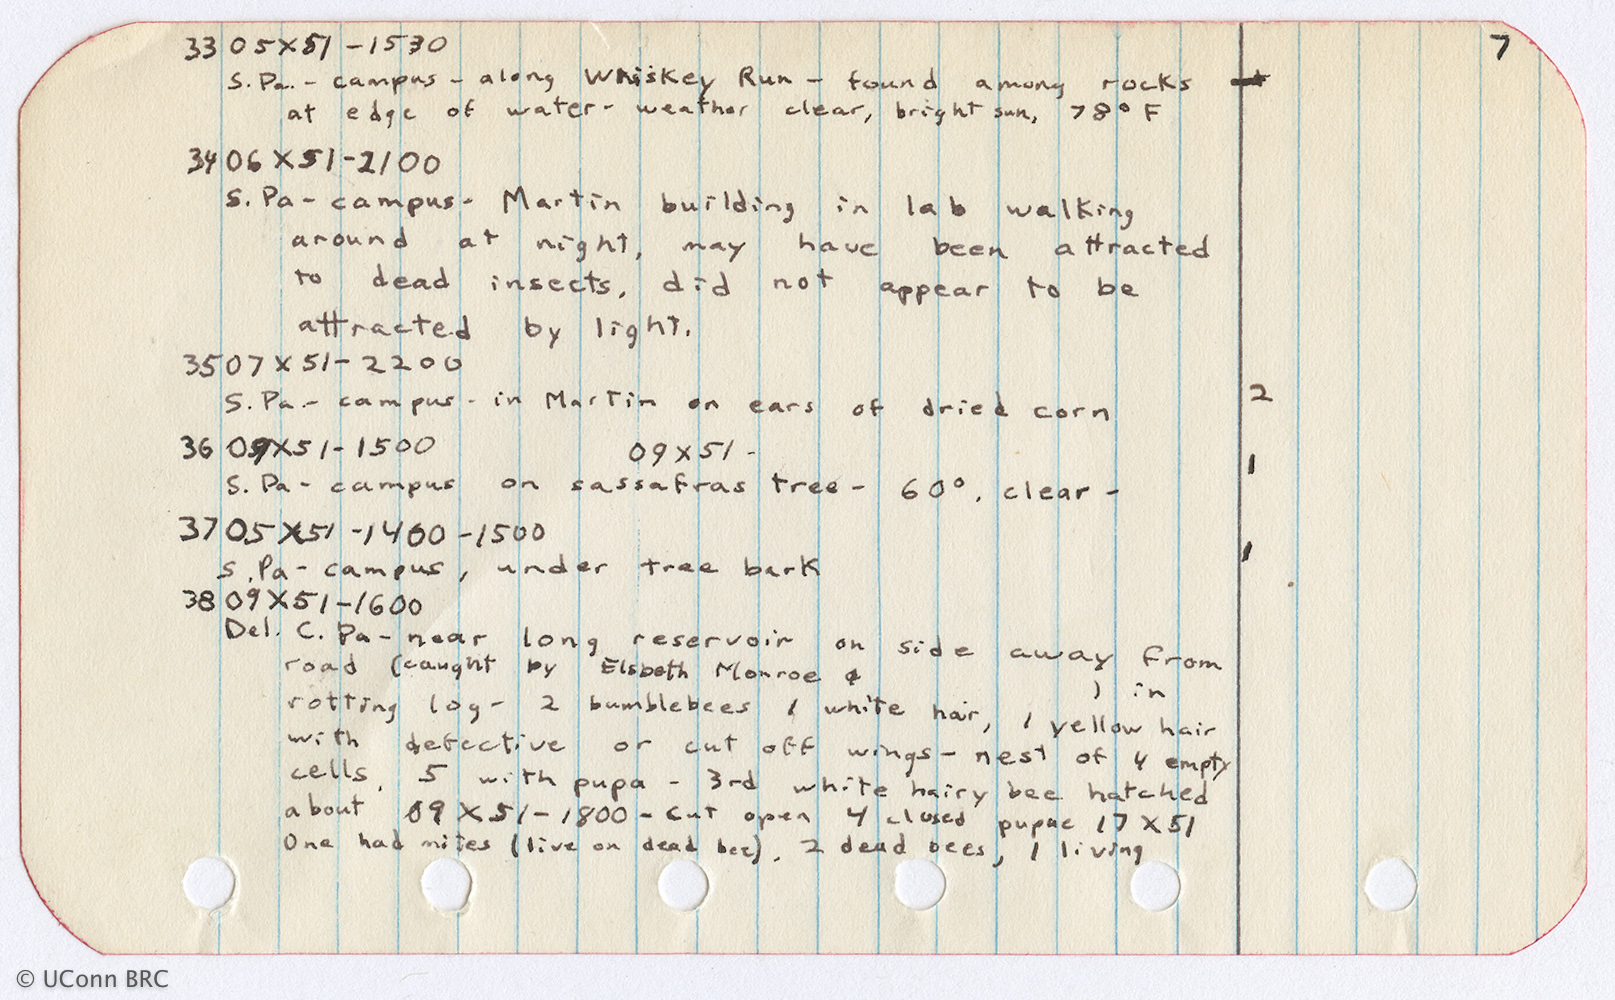 7
33 05X51-1530
S. Pa.- campus - along Whiskey Run - found among rocks
at edge of water- weather clear, bright sun, 78° F
34 06X51-2100
S. Pa- campus- Martin building in lab walking
around at night, may have been attracted
to dead insects, did not appear to be
attracted by light.
35 07X51-2200
S. Pa.- campus - in Martin on ears of dried corn 2
36 09X51-1500 09X51-
S. Pa- campus on sassafras tree- 60°, clear- 1
37 05X51-1400-1500
S. Pa- campus, under tree bark 1
38 09X51-1600
Del. C. Pa- near long reservoir on side away from
road (caught by Elsbeth Monroe &
) in
rotting log- 2 bumblebees 1 white hair, 1 yellow hair
with defective or cut off wings- nest of 4 empty
cells, 5 with pupa - 3rd white hairy bee hatched
about 09X51-1800- cut open 4 closed pupae 17X51
One had mites (live on dead bee), 2 dead bees, 1 living
© UConn BRC